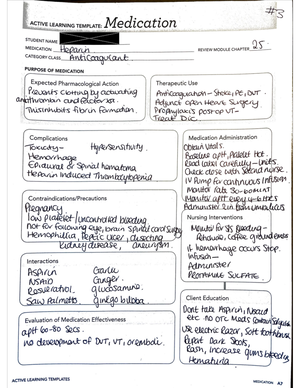 #3
ACTIVE LEARNING TEMPLATE: Medication
STUDENT NAME
MEDICATION Heparin REVIEW MODULE CHAPTER 25
CATEGORY CLASS Anticoagulant
PURPOSE OF MEDICATION
Expected Pharmacological Action
Prevents clotting by activating
antithrombin
This inhibits fibrin formation.
Therapeutic Use
Anticoagulation - Stroke, PE, DVT
Adjunct open Heart Surgery
Prophylaxis post-op VT
Treat DIC
Complications
Toxicity- Hypersensitivity
Hemorrhage
Epidural & Spinal hematoma
Heparin Induced Thrombocytopenia
Medication Administration
Obtain Vitals.
Baseline aptt, Platelet Hct
Read label carefully - units.
Check dose with second nurse.
IV Pump for continuous Infusion.
Monitor rate 30-60 min
Monitor aptt every 4-6 hrs
Administer
Contraindications/Precautions
Pregnancy
low platelet/uncontrolled bleeding
not for following eye, brain, spinal cord surgery
Hemophilia, Peptic ulcer, dissecting
kidney disease, aneurysm
Nursing Interventions
Monitor for S/S Bleeding -
coffee ground emesis
if hemorrhage occurs Stop
Infusion -
Administer
PROTAMINE SULFATE
Interactions
Aspirin Garlic
NSAID Ginger
glucosamine
Saw Palmetto ginkgo biloba
Evaluation of Medication Effectiveness
aptt 60-80 Secs
no development of DVT, VT, emboli
Client Education
Dont take Aspirin, Nsaid
etc no OTC Meds
use electric Razor, Soft toothbrush
Report Dark Stools,
Rash, increase gums bleeding
Hematuria
ACTIVE LEARNING TEMPLATES
MEDICATION A7